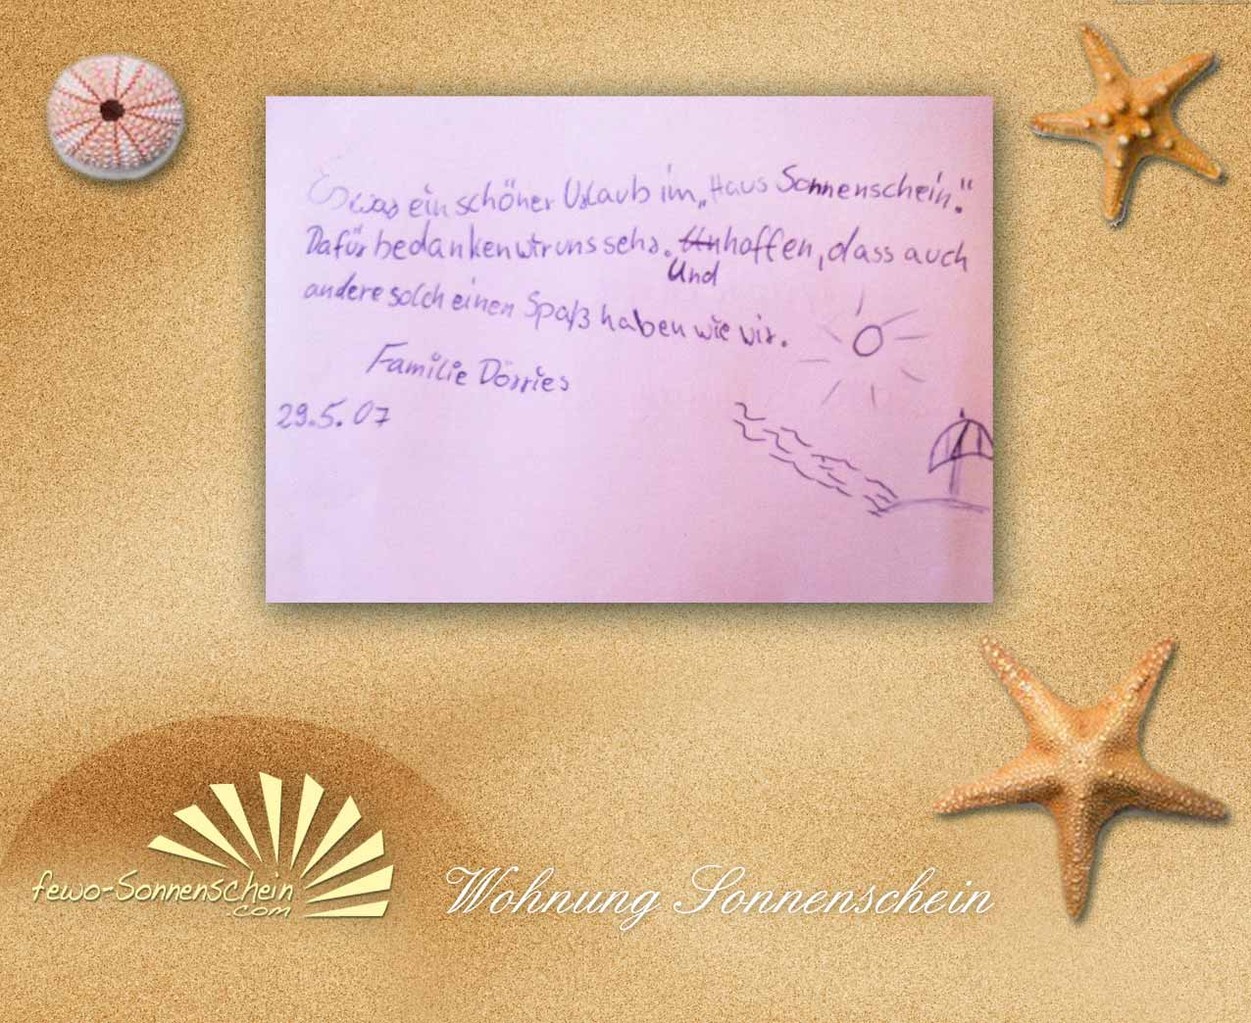 Es war ein schöner Urlaub im „Haus Sonnenschein."
Dafür bedanken wir uns sehr. Un hoffen, dass auch
Und
andere solch einen Spaß haben wie wir.
Familie Dörries
29.5.07
fewo-Sonnenschein
.com
Wohnung Sonnenschein